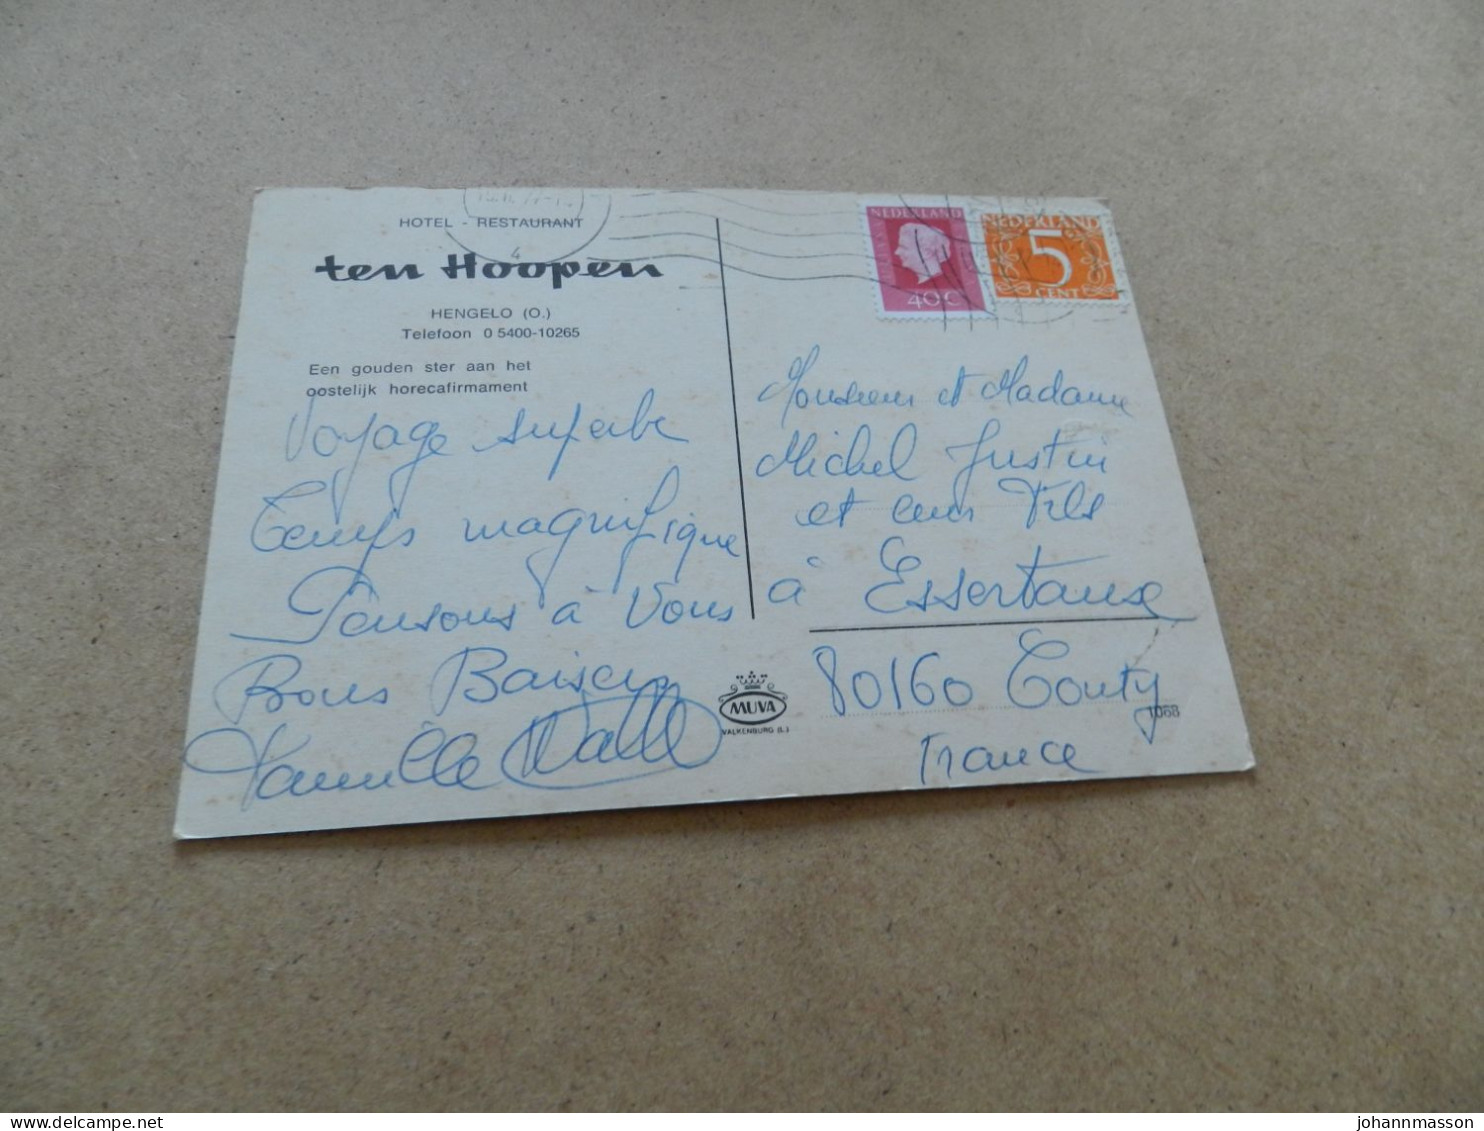 HOTEL - RESTAURANT
ten Hoopen
HENGELO (O.)
Telefoon 0 5400-10265
Een gouden ster aan het
oostelijk horecafirmament
Voyage superbe
Temps magnifique
Pensons à Vous
Bons Baisers
Famille
NEDERLAND
40 C
NEDERLAND
5
CENT
Monsieur et Madame
Michel Justin
et leur Fils
à Essertaux
80160 Conty
France
MUVA
VALKENBURG (L.)
1068
delcampe.net
johannmasson